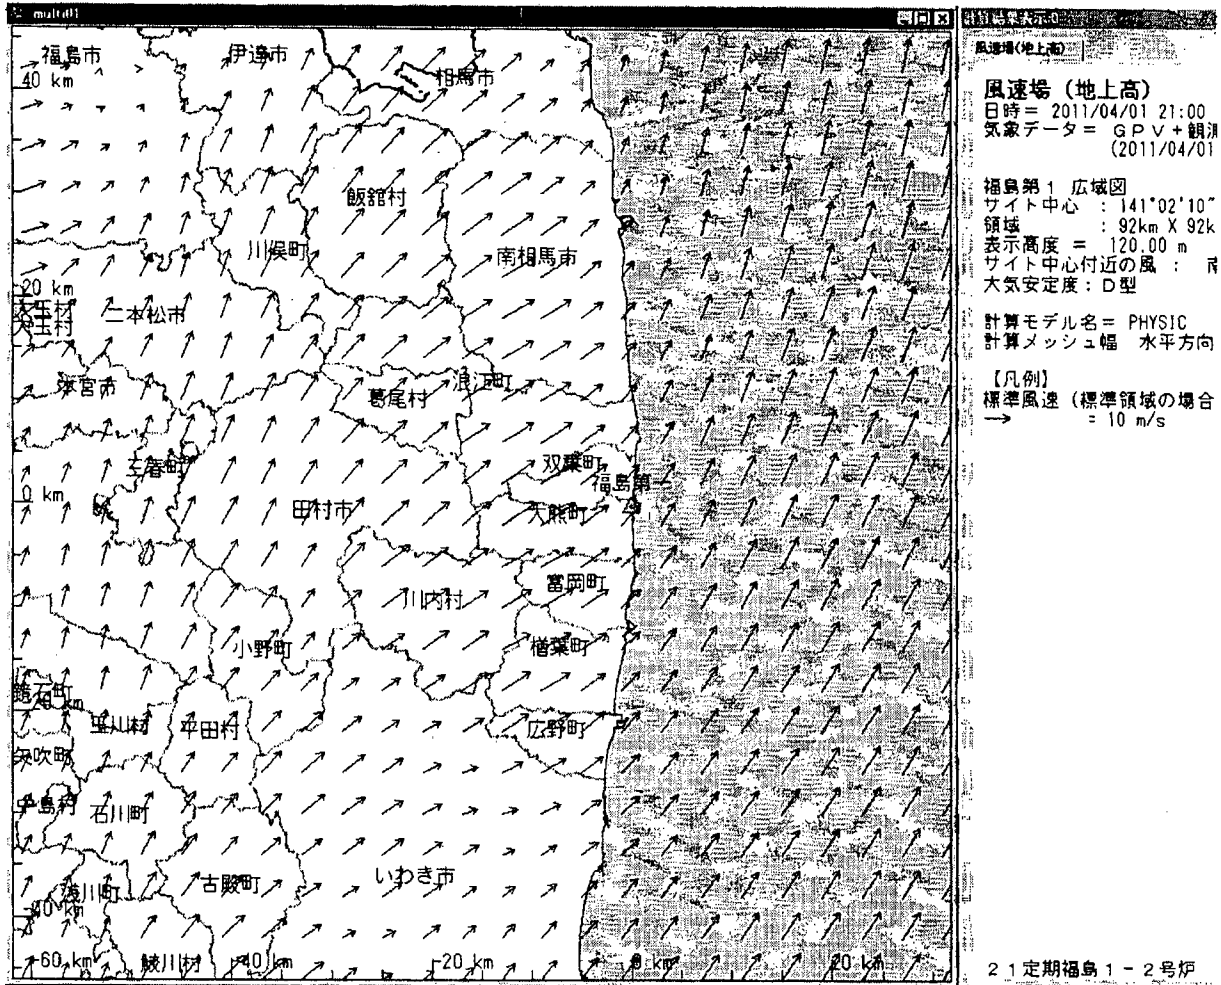 multi01
福島市
伊達市
相馬市
40 km
飯舘村
川俣町
南相馬市
20 km
大玉村
二本松市
本宮市
浪江町
葛尾村
三春町
双葉町
福島第
0 km
田村市
大熊町
川内村
富岡町
小野町
楢葉町
鏡石町
玉川村
平田村
広野町
矢吹町
中島村
石川町
浅川町
古殿町
いわき市
-60 km
鮫川村
-40 km
-20 km
0 km
20 km
計算結果表示:0
風速場(地上高)
風速場（地上高）
日時＝ 2011/04/01 21:00
気象データ＝ ＧＰＶ＋観測
(2011/04/01
福島第１ 広域図
サイト中心 ： 141°02'10"
領域 ： 92km X 92k
表示高度 ＝ 120.00 m
サイト中心付近の風 ： 南
大気安定度：Ｄ型
計算モデル名＝ PHYSIC
計算メッシュ幅 水平方向
【凡例】
標準風速（標準領域の場合
→ ＝ 10 m/s
２１定期福島１－２号炉